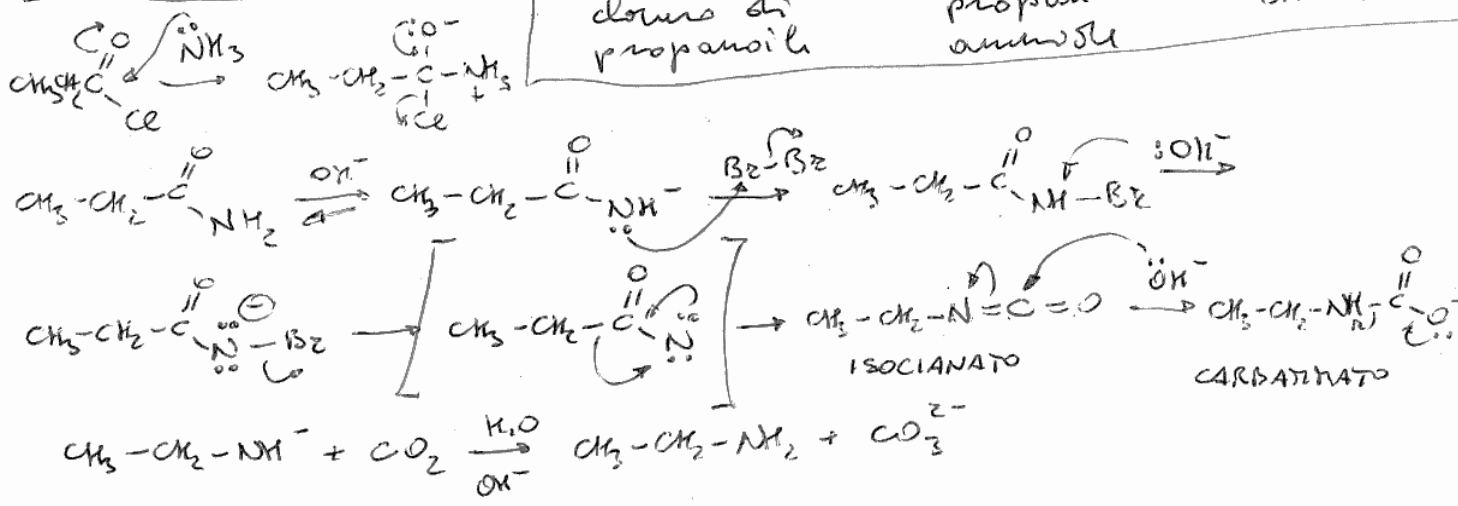 cloruro di
propanoile ammide
CH3CH2 C O Cl :NH3 → CH3-CH2-C-NH3+ :O:- Cl
CH3-CH2-C(=O)-NH2 ⇌ OH- CH3-CH2-C(=O)-NH- → Br-Br CH3-CH2-C(=O)-NH-Br :OH- →
CH3-CH2-C(=O)-N⊖-Br → [CH3-CH2-C(=O)-N] → CH3-CH2-N=C=O :OH- → CH3-CH2-NH-C(=O)-O-
ISOCIANATO CARBAMMATO
CH3-CH2-NH- + CO2 → H2O OH- CH3-CH2-NH2 + CO3 2-